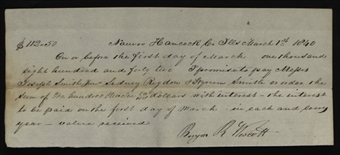 Nauvoo Hancock Co Ills March 1st 1840
On or before the first day of March one thousand
eight hundred and forty two I promise to pay Messrs
Joseph Smith Jun Sidney Rigdon & Hyrum Smith or order the
Sum of one hundred dollars with interest - the interest
to be paid on the first day of March in each and every
year - value received